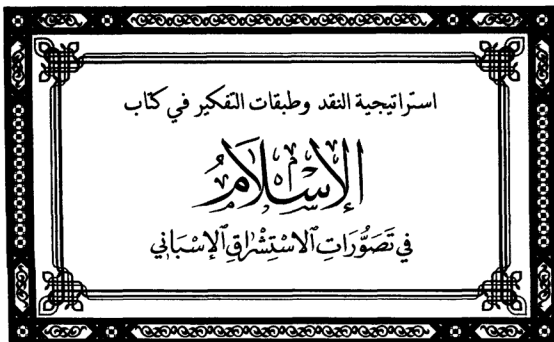 استراتيجية النقد وطبقات التفكير في كتاب
الإسلام
في تَصَوُّرَاتِ الاسْتِشْرَاقِ الإسْبَانِي